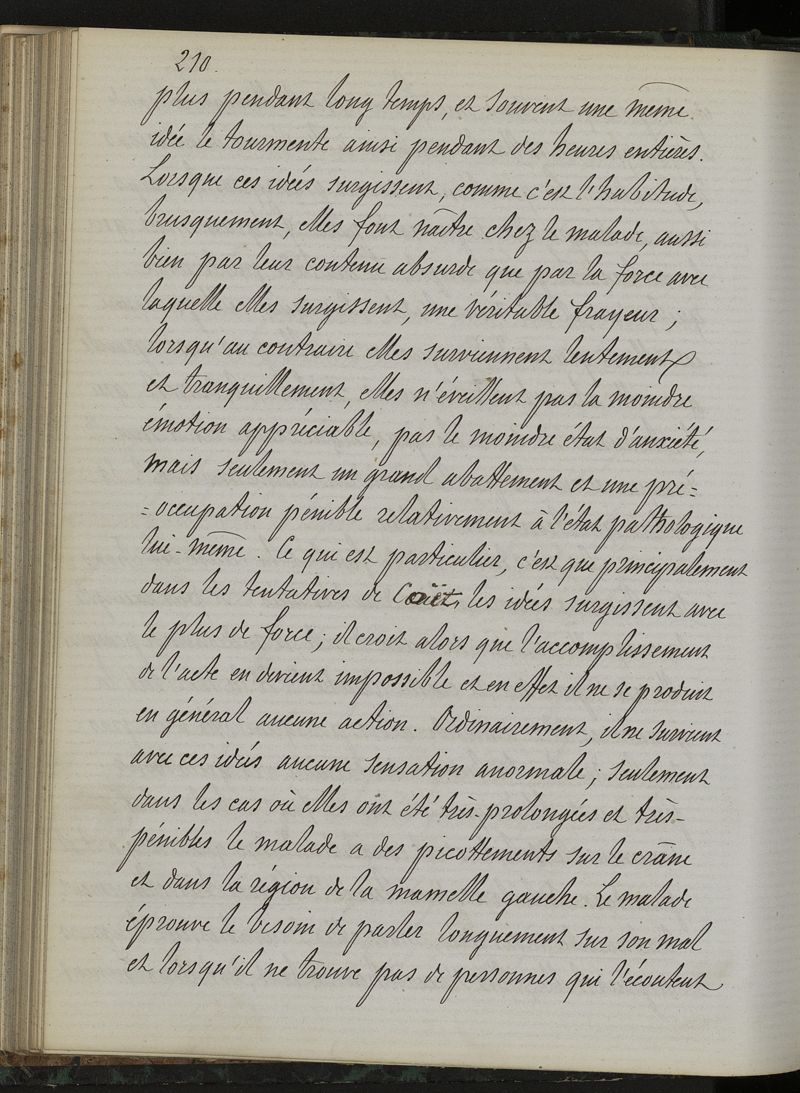 210.
plus pendant long temps, et souvent une même
idée le tourmente ainsi pendant des heures entières.
Lorsque ces idées surgissent, comme c'est l'habitude,
brusquement, elles font naître chez le malade, aussi
bien par leur contenu absurde que par la force avec
laquelle elles surgissent, une véritable frayeur ;
lorsqu'au contraire elles surviennent lentement
et tranquillement, elles n'éveillent pas la moindre
émotion appréciable, pas le moindre état d'anxiété,
mais seulement un grand abattement et une pré=
=occupation pénible relativement à l'état pathologique
lui-même. Ce qui est particulier, c'est que principalement
dans les tentatives de Coït, les idées surgissent avec
le plus de force ; il croit alors que l'accomplissement
de l'acte en devient impossible et en effet il ne se produit
en général aucune action. Ordinairement, il ne survient
avec ces idées aucune sensation anormale ; seulement
dans les cas où elles ont été très-prolongées et très-
pénibles le malade a des picottements sur le crâne
et dans la région de la mamelle gauche. Le malade
éprouve le besoin de parler longuement sur son mal
et lorsqu'il ne trouve pas de personnes qui l'écoutent